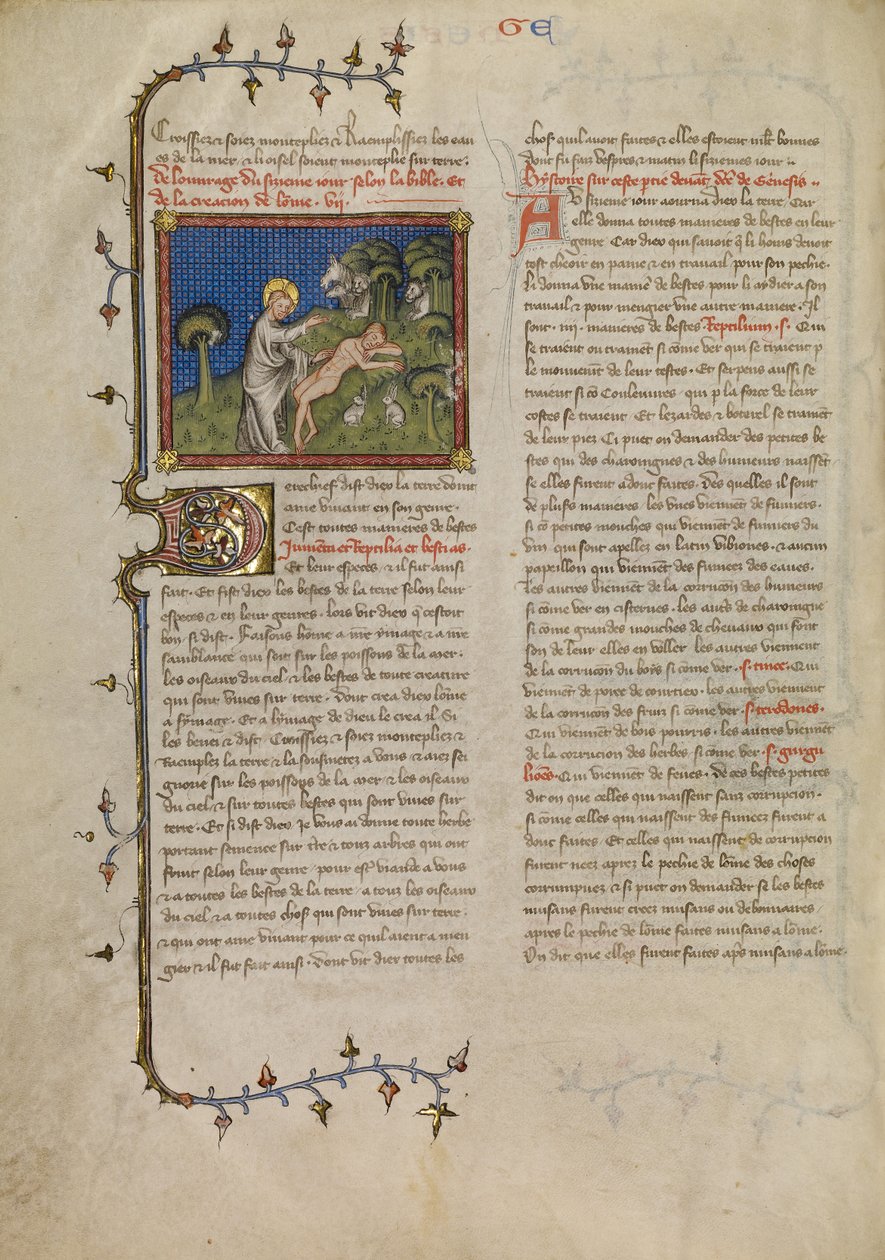 GE
Croissiez & soiez montepliez & Raemplissiez les eau
es de la mer. & li oisel soient monteplie sur terre.
De louurage du sizieme iour selon la bible. Et
de la creacion de lome. vij.
Derechief dist diex la terre doint
ame viuant en son genre.
Cest toutes manieres de bestes
Iumenta et Reptilia et bestias.
Et leur especes. & il fut ainsi
fait. Et fist diex les bestes de la terre selon leur
especes & en leur genres. lors vit diex q̃ cestoit
bon. si dist. Faisons home a nr̃e ymage & a nr̃e
samblance qui soit sur les poissons de la mer.
les oiseaux du ciel & les bestes de toute creature
qui sont viues sur terre. Dont crea diex lome
a symage. Et a lymage de dieu le crea il. Si
les benei & dist. Croissiez & soiez montepliez &
Raemplez la terre & la sousmetez a vous & aiez sei
gnorie sur les poissons de la mer & les oiseaux
du ciel & sur toutes bestes qui sont viues sur
terre. Et si dist diex Je vous ai donne toute herbe
portant semence sur tr̃e & touz arbres qui ont
fruit selon leur genre. pour estr̃ viande a vous
& a toutes les bestes de la terre. a touz les oiseaux
du ciel & a toutes choses qui sont viues sur terre.
& qui ont ame viuant pour ce quil aient a men
gier & il fut fait ainsi. Dont vit dier toutes les
choses quil auoit faites & elles estoient bonnes
dont fu fait vespres & matin li sizieme iour.
Hystoire sur ceste ptie deuant de Genesis
Au sizieme iour aourna diex la terre. Car
elle donna toutes manieres de bestes en leur
genre. Car diex qui sauoit q̃ li homs deuoit
tost cheoir en paine & en trauail pour son pechie.
li donna vne manie᷑ de bestes pour li aydier a son
trauail & pour mengier vne autre maniere. Il
sont .iij. manieres de bestes. Reptilium .s. Qui
se traient ou trainent si come ver qui se traient p
le mouuemt̃ de leur testes. Et serpens aussi se
traient si cõ Couleuures. qui p la force de leur
costes se traient. Et lezardes & boterel se trainent
de leur piez. Ci puet on demander des petites be
stes qui des charoingnes & des humeurs naissent
se elles furent adont faites. Des quelles il sont
de plus̃s manieres. les vnes viennẽt de fumiers.
si cõ petites mouches qui viennẽt de fumiers du
vin qui sont apellez en latin vibiones. & aucun
papeillon qui viennẽt des fumees des eaues.
Les autres viennẽt de la corrucon des humeurs
si come ver en cisternes. les autres de charoingne
si come grandes mouches de cheuaux qui font
son de leur elles en voller. les autres viennent
de la corrucon du boys si come ver. .s. tinee. Qui
viennẽt de de courtiex. les autres viennent
de la corrucon des fruiz si come ver. .s. teredones.
Qui viennẽt de bois pourris. les autres viennẽt
de la corrucion des herbes si come ver. .s. gurgu
liões. Qui viennẽt de feues. De ces bestes petites
dit on que celles qui naissent sanz corrupcion.
si come celles qui naissent des fumeez furent a
dont faites. Et celles qui naissent de corrupcion
furent neez aprez le pechie de lome des choses
corrumpuez. & si puet on demander se les bestes
nuisans furent creez nuisans ou debonnaires.
apres le pechie de lome faites nuisans a lome.
On dit que elles furent faites apr̃s nuisans a lome.